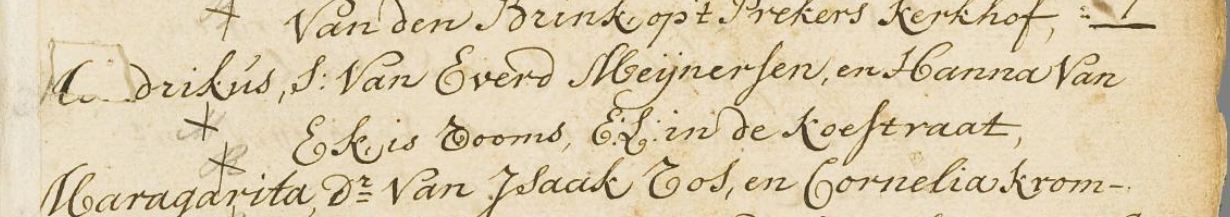 Van den Brink, op't Prekers Kerkhof, :
drikús, S: Van Everd Meijnersen, en Hanna Van
Ek, is Rooms, E:L: in de Koestraat,
Maragarita, Dr: Van Isaak Tos, en Cornelia Krom-